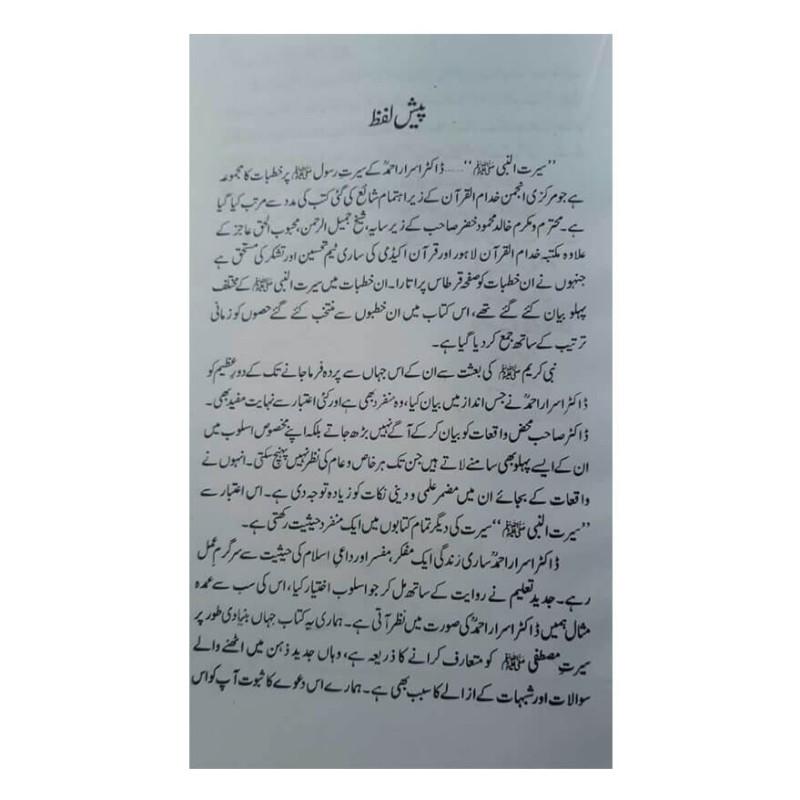 پیش لفظ
”سیرت النبی ﷺ“..... ڈاکٹر اسرار احمدؒ کے سیرتِ رسول ﷺ پر خطبات کا مجموعہ
ہے جو مرکزی انجمن خدام القرآن کے زیر اہتمام شائع کی گئی کتب کی مدد سے مرتب کیا گیا
ہے۔ محترم و مکرم خالد محمود خضر صاحب کے زیر سایہ، شیخ جمیل الرحمن، محبوب الحق عاجز کے
علاوہ مکتبہ خدام القرآن لاہور اور قرآن اکیڈمی کی ساری ٹیم تحسین اور تشکر کی مستحق ہے
جنہوں نے ان خطبات کو صفحہ قرطاس پر اتارا۔ ان خطبات میں سیرت النبی ﷺ کے مختلف
پہلو بیان کئے گئے تھے، اس کتاب میں ان خطبوں سے منتخب کئے گئے حصوں کو زمانی
ترتیب کے ساتھ جمع کر دیا گیا ہے۔
نبی کریم ﷺ کی بعثت سے ان کے اس جہاں سے پردہ فرما جانے تک کے دورِ عظیم کو
ڈاکٹر اسرار احمدؒ نے جس انداز میں بیان کیا، وہ منفرد بھی ہے اور کئی اعتبار سے نہایت مفید بھی۔
ڈاکٹر صاحب محض واقعات کو بیان کر کے آگے نہیں بڑھ جاتے بلکہ اپنے مخصوص اسلوب میں
ان کے ایسے پہلو بھی سامنے لاتے ہیں جن تک ہر خاص و عام کی نظر نہیں پہنچ سکتی۔ انہوں نے
واقعات کے بجائے ان میں مضمر علمی و دینی نکات کو زیادہ توجہ دی ہے۔ اس اعتبار سے
”سیرت النبی ﷺ“ سیرت کی دیگر تمام کتابوں میں ایک منفرد حیثیت رکھتی ہے۔
ڈاکٹر اسرار احمدؒ ساری زندگی ایک مفکر، مفسر اور داعیِ اسلام کی حیثیت سے سرگرمِ عمل
رہے۔ جدید تعلیم نے روایت کے ساتھ مل کر جو اسلوب اختیار کیا، اس کی سب سے عمدہ
مثال ہمیں ڈاکٹر اسرار احمدؒ کی صورت میں نظر آتی ہے۔ ہماری یہ کتاب جہاں بنیادی طور پر
سیرتِ مصطفی ﷺ کو متعارف کرانے کا ذریعہ ہے، وہاں جدید ذہن میں اٹھنے والے
سوالات اور شبہات کے ازالے کا سبب بھی ہے۔ ہمارے اس دعوے کا ثبوت آپ کو اس